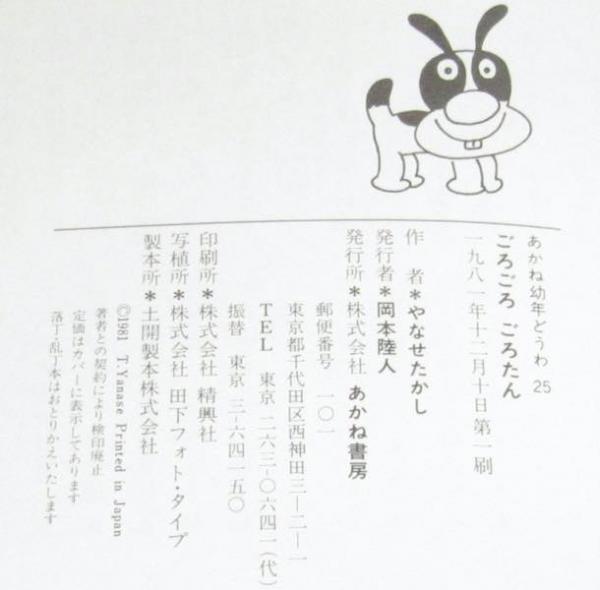 あかね幼年どうわ 25
ごろごろ ごろたん
一九八一年十二月十日第一刷
作 者＊やなせたかし
発行者＊岡本陸人
発行所＊株式会社 あかね書房
郵便番号 一〇一
東京都千代田区西神田三—二—一
TEL 東京 二六三—〇六四一（代）
振替 東京 三—六四一五〇
印刷所＊株式会社 精興社
写植所＊株式会社 田下フォト・タイプ
製本所＊土開製本株式会社
©1981 T.Yanase Printed in Japan
著者との契約により検印廃止
定価はカバーに表示してあります
落丁・乱丁本はおとりかえいたします